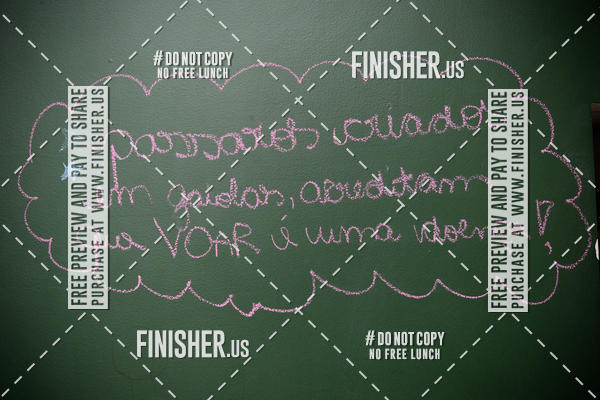 # DO NOT COPY
NO FREE LUNCH
FINISHER.US
FREE PREVIEW AND PAY TO SHARE
PURCHASE AT WWW.FINISHER.US
passaros criados
em gaiolas, acreditam
que VOAR é uma doença!
FREE PREVIEW AND PAY TO SHARE
PURCHASE AT WWW.FINISHER.US
FINISHER.US
# DO NOT COPY
NO FREE LUNCH